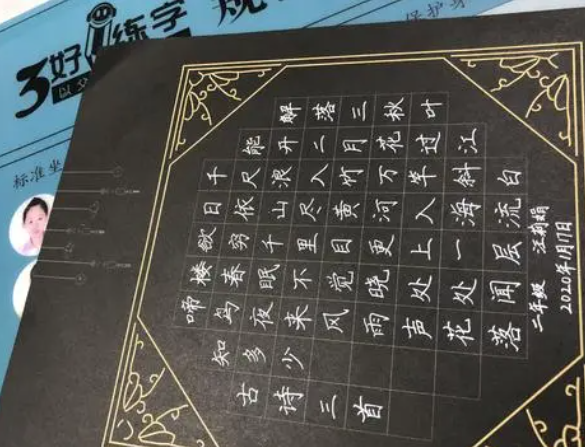 3好练字
规
保护
标准坐
解落三秋叶
能开二月花过江
千尺浪入竹万竿斜白
日依山尽黄河入海流
欲穷千里目更上一层
楼春眠不觉晓处处闻
啼鸟夜来风雨声花落
知多少
古诗三首
二年级 汪莉娟
2020年1月17日